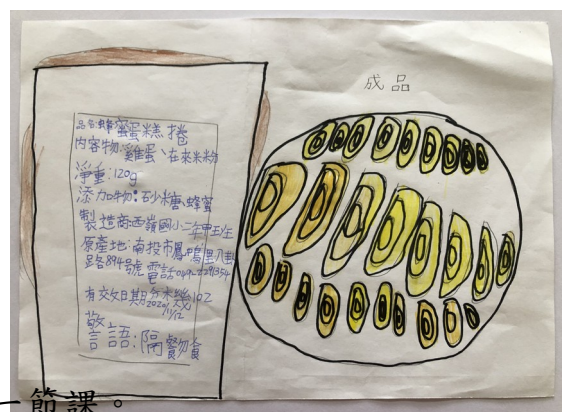 成品
品名:蜂蜜蛋糕捲
內容物:雞蛋、在來米粉
淨重:120g
添加物:砂糖、蜂蜜
製造商:西嶺國小二年甲班
原產地:南投市鳳鳴里八卦
路894號 電話
有效日期
2020/
11/12
警
言語:隔餐勿食
一節課。